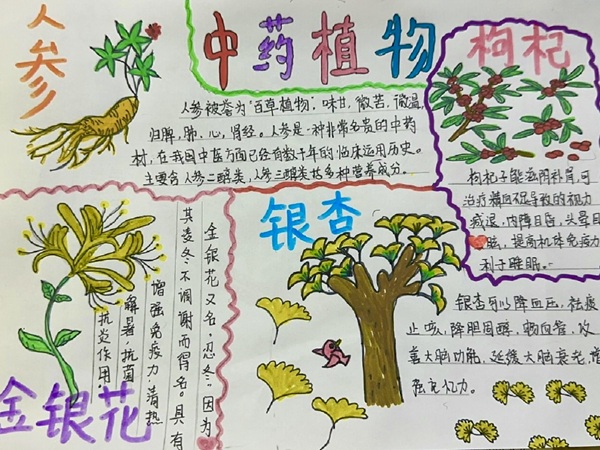 中药植物
人参
人参被誉为"百草植物"，味甘，微苦，微温，
归脾，肺，心，肾经。人参是一种非常名贵的中药
材，在我国中医方面已经有数千年的临床运用历史。
主要含人参二醇类，人参三醇类等多种营养成分。
枸杞
枸杞子能滋阴补肾，可
治疗精血不足导致的视力
减退，内障目昏，头晕目
眩，提高机体免疫力
利于睡眠。
金银花
金银花又名，忍冬，因为
其凌冬不凋谢而得名。具有
增强免疫力，清热
解暑，抗菌
抗炎作用。
银杏
银杏可以降血压，祛痰
止咳，降胆固醇，改
善大脑功能，延缓大脑衰老，增
强记忆力。